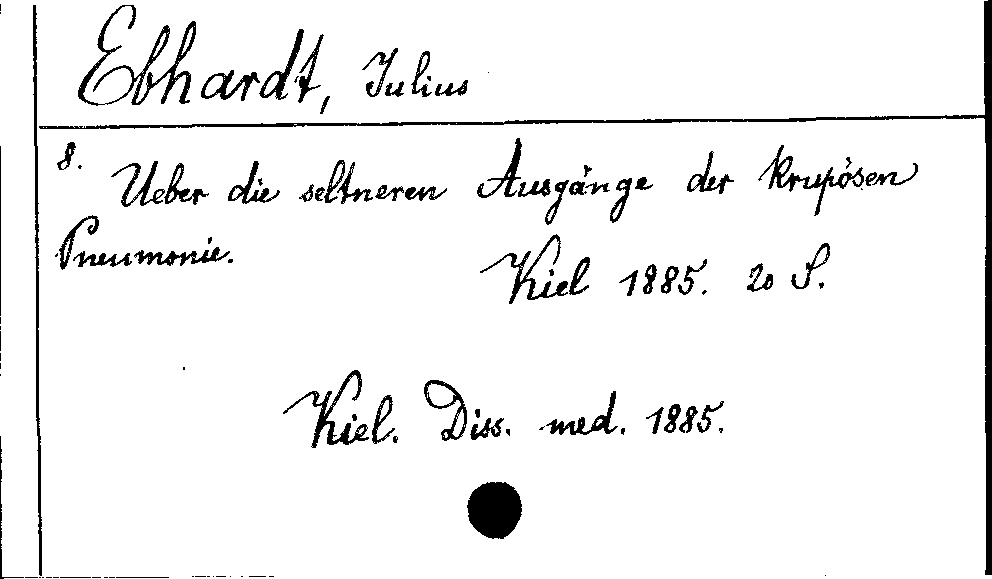 Ebhardt, Julius
8. Ueber die seltneren Ausgänge der krupösen
Pneumonie.
Kiel 1885. 20 S.
Kiel. Diss. med. 1885.